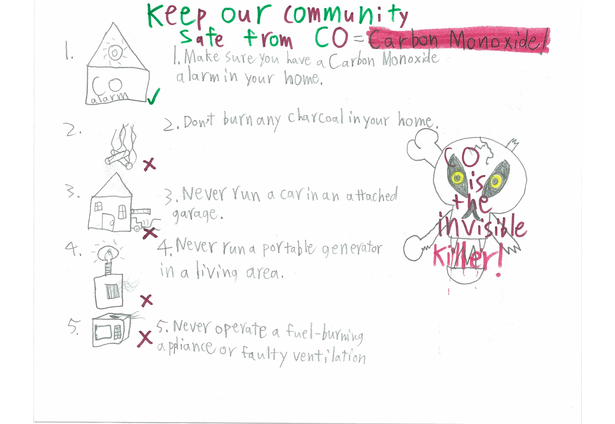 Keep our community
safe from CO = Carbon Monoxide!
1.
CO
alarm
1. Make sure you have a Carbon Monoxide
alarm in your home.
2.
2. Don't burn any charcoal in your home.
3.
3. Never run a car in an attached
garage.
4.
4. Never run a portable generator
in a living area.
5.
5. Never operate a fuel-burning
appliance or faulty ventilation
CO
is
the
invisible
killer!